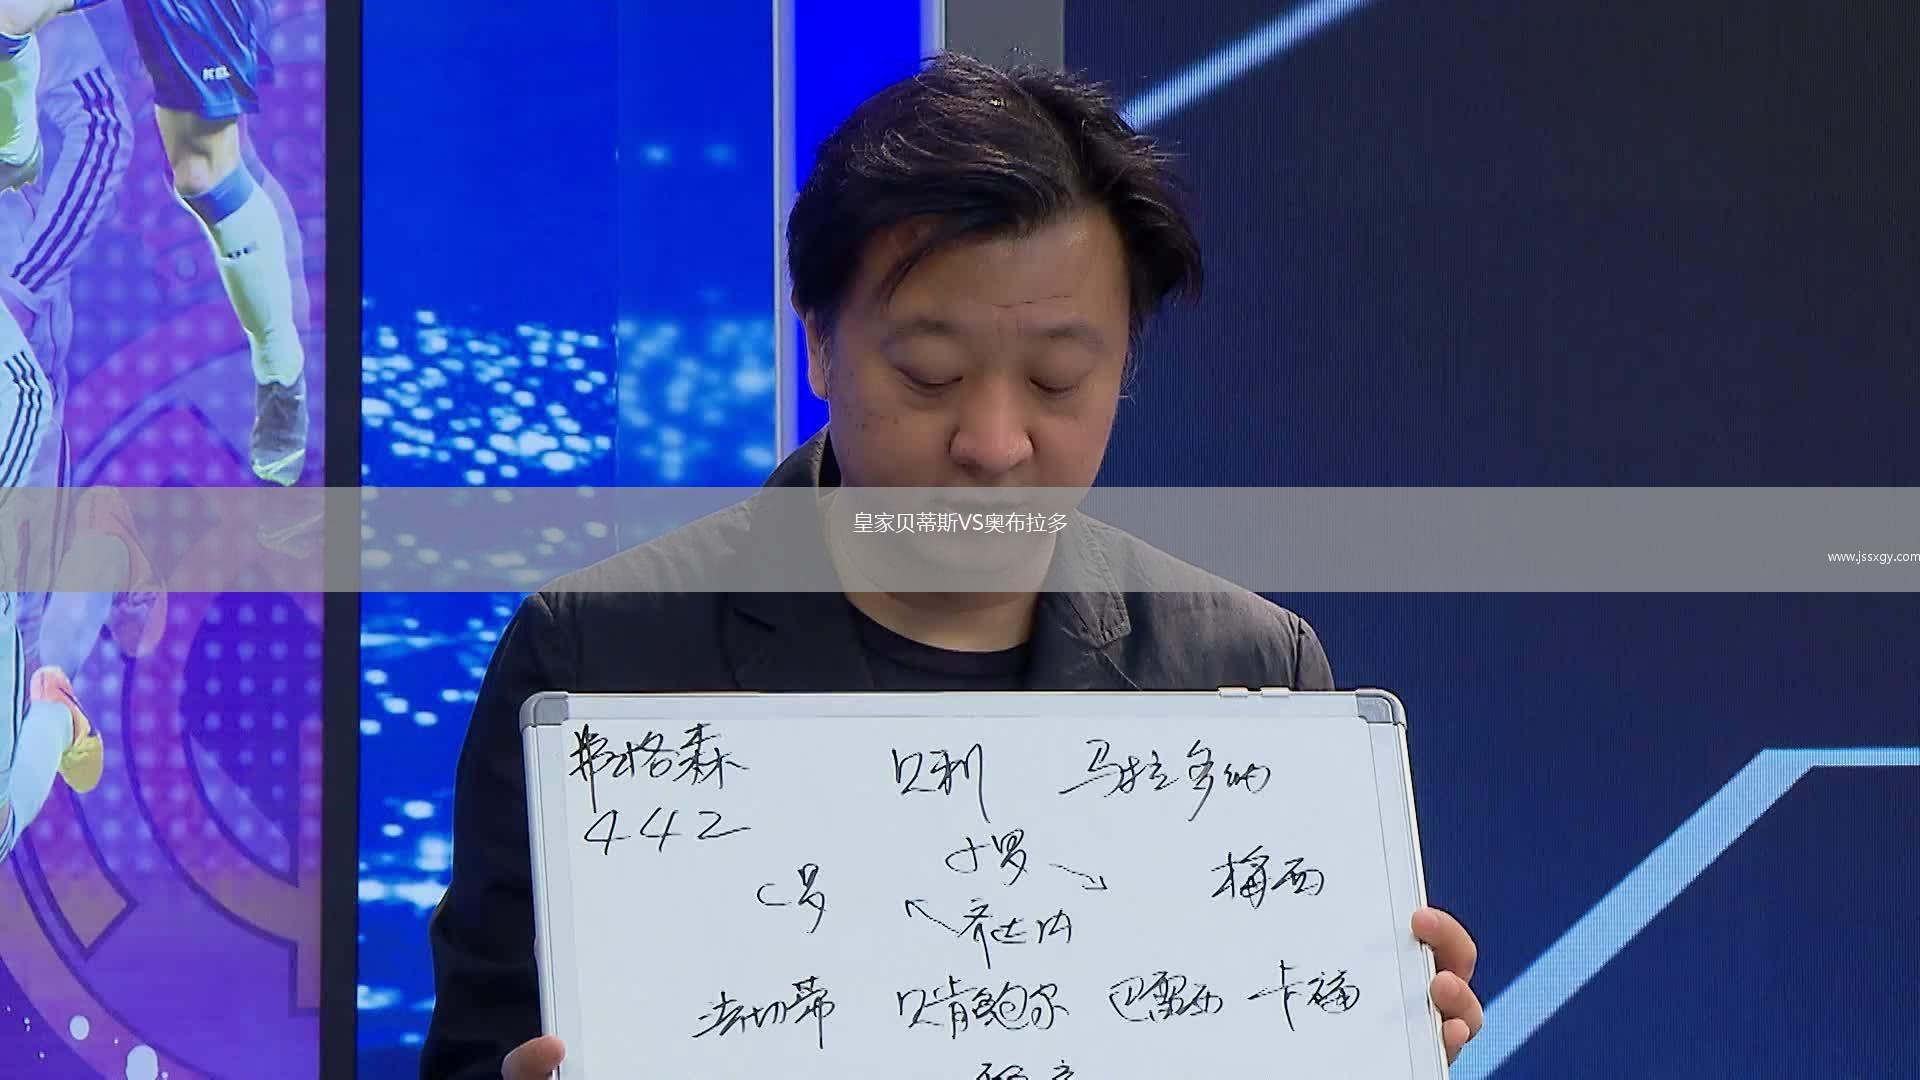 皇家贝蒂斯VS奥布拉多
www.jssxgy.com
弗格森 贝利 马拉多纳
442
小罗
C罗 梅西
齐达内
法切蒂 贝肯鲍尔 巴雷西 卡福